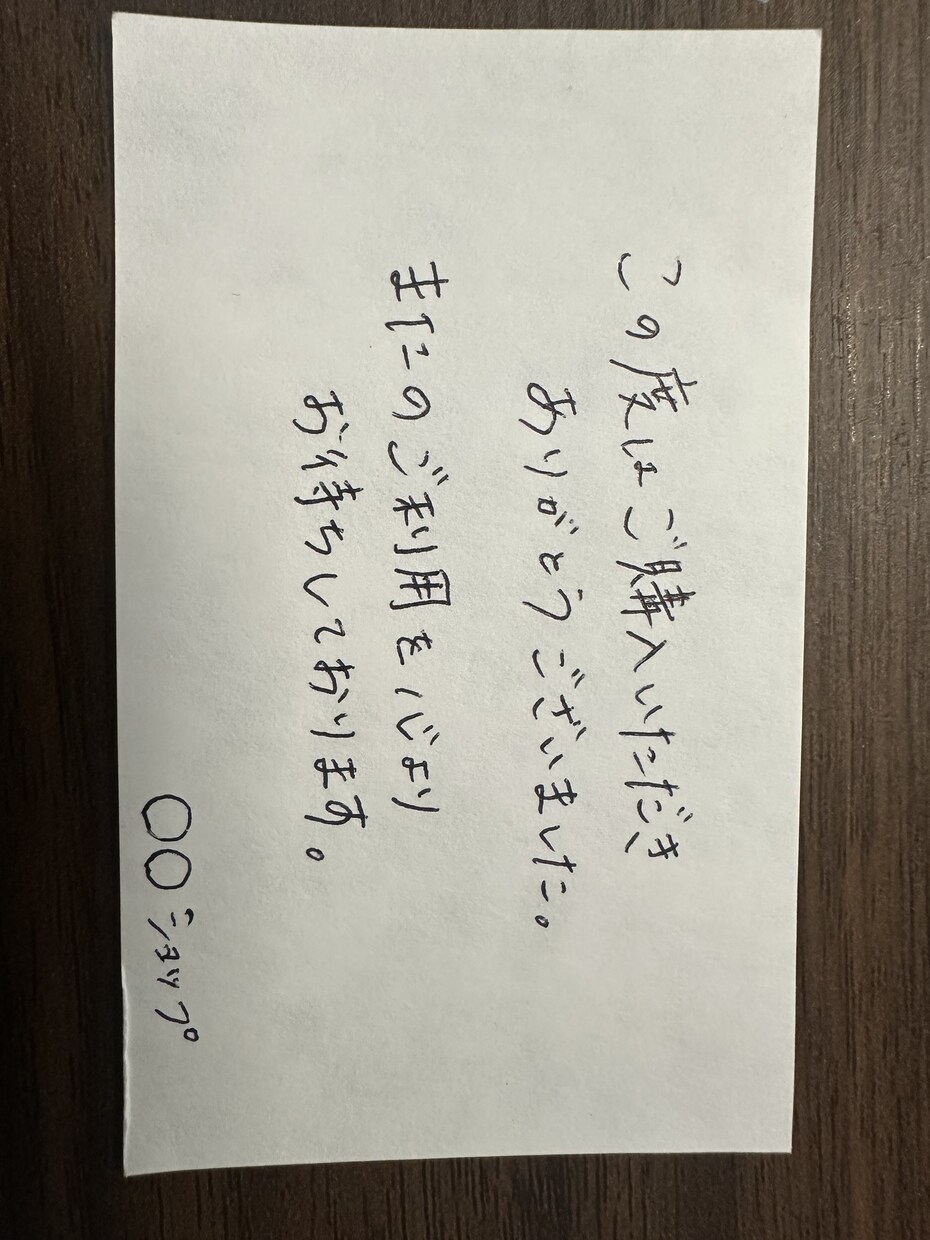 この度はご購入いただき
ありがとうございました。
またのご利用を心より
お待ちしております。
〇〇ショップ